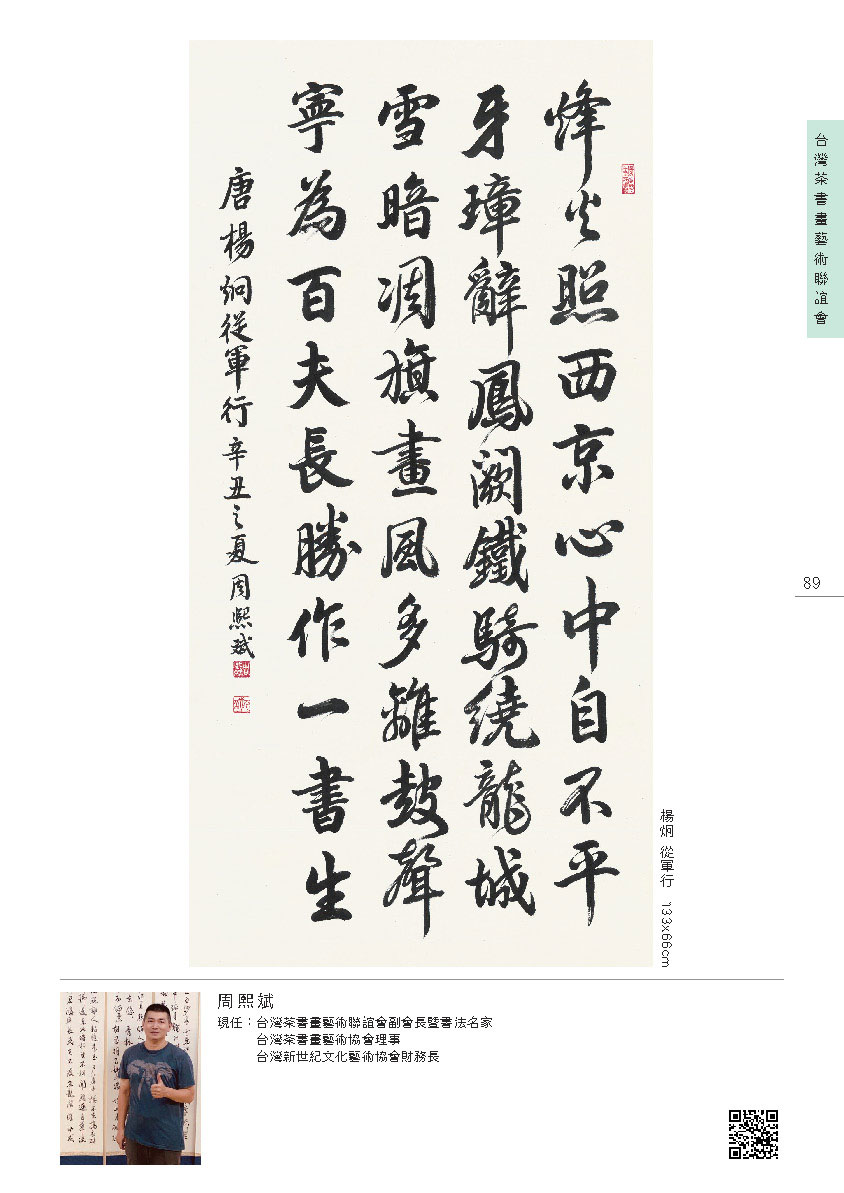 台灣茶書畫藝術聯誼會
89
烽火照西京心中自不平
牙璋辭鳳闕鐵騎繞龍城
雪暗凋旗畫風多雜鼓聲
寧為百夫長勝作一書生
唐楊炯從軍行辛丑之夏周熙斌
楊炯 從軍行 133x66cm
周熙斌
現任：台灣茶書畫藝術聯誼會副會長暨書法名家
台灣茶書畫藝術協會理事
台灣新世紀文化藝術協會財務長